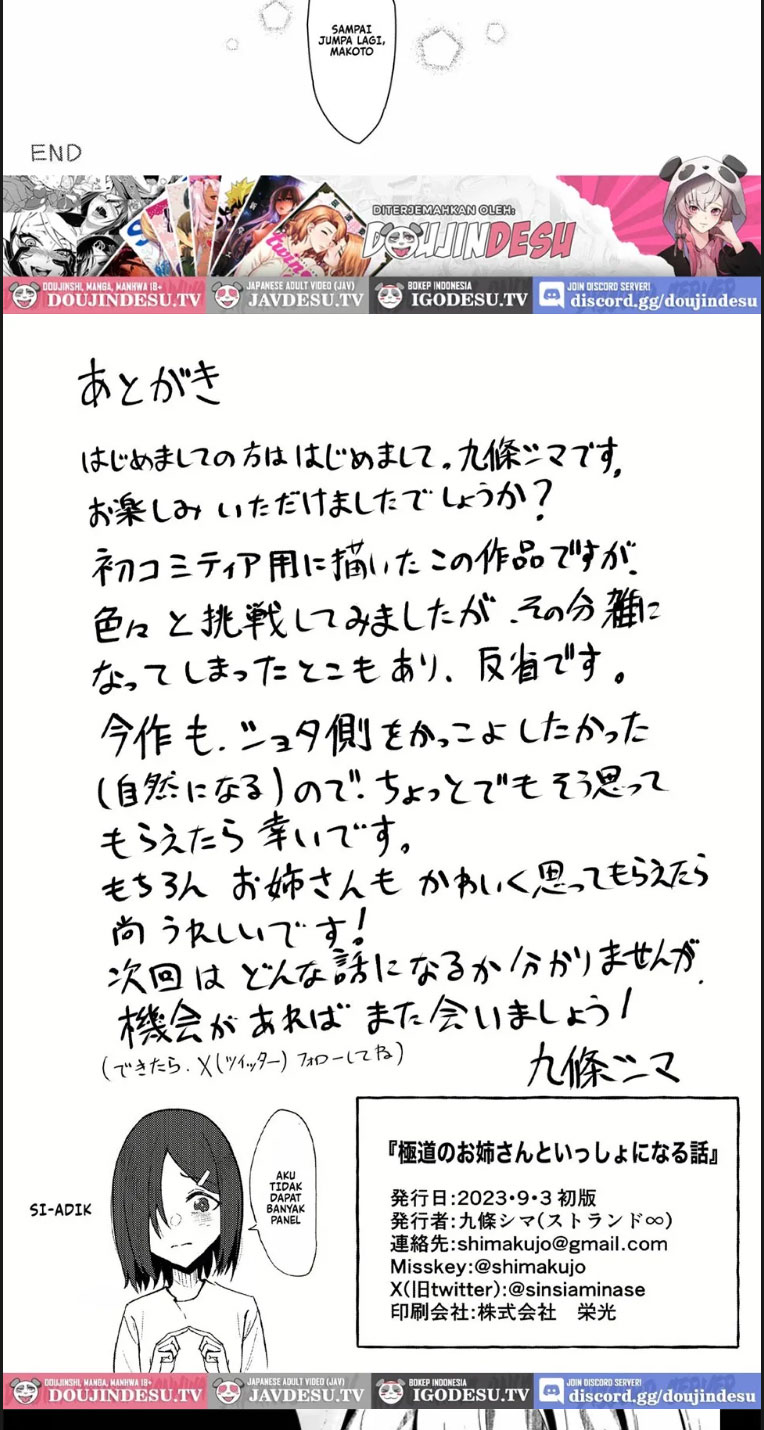 SAMPAI
JUMPA LAGI,
MAKOTO
END
DITERJEMAHKAN OLEH:
DOUJINDESU
DOUJINSHI, MANGA, MANHWA 18+
DOUJINDESU.TV
JAPANESE ADULT VIDEO (JAV)
JAVDESU.TV
BOKEP INDONESIA
IGODESU.TV
JOIN DISCORD SERVER!
discord.gg/doujindesu
あとがき
はじめましての方は はじめまして。九條シマです。
お楽しみ いただけましたでしょうか?
初コミティア用に描いたこの作品ですが、
色々と挑戦してみましたが、その分雑に
なってしまったとこもあり、反省です。
今作も、ショタ側をかっこよしたかった
(自然になる)ので、ちょっとでもそう思って
もらえたら幸いです。
もちろん お姉さんも かわいく思ってもらえたら
尚うれしいです!
次回は どんな話になるか分かりませんが、
機会があれば また会いましょう!
(できたら、X(ツイッター)フォローしてね)
九條シマ
SI-ADIK
AKU
TIDAK
DAPAT
BANYAK
PANEL
『極道のお姉さんといっしょになる話』
発行日:2023・9・3 初版
発行者:九條シマ(ストランド∞)
連絡先:shimakujo@gmail.com
Misskey:@shimakujo
X(旧twitter):@sinsiaminase
印刷会社:株式会社　栄光
DOUJINSHI, MANGA, MANHWA 18+
DOUJINDESU.TV
JAPANESE ADULT VIDEO (JAV)
JAVDESU.TV
BOKEP INDONESIA
IGODESU.TV
JOIN DISCORD SERVER!
discord.gg/doujindesu